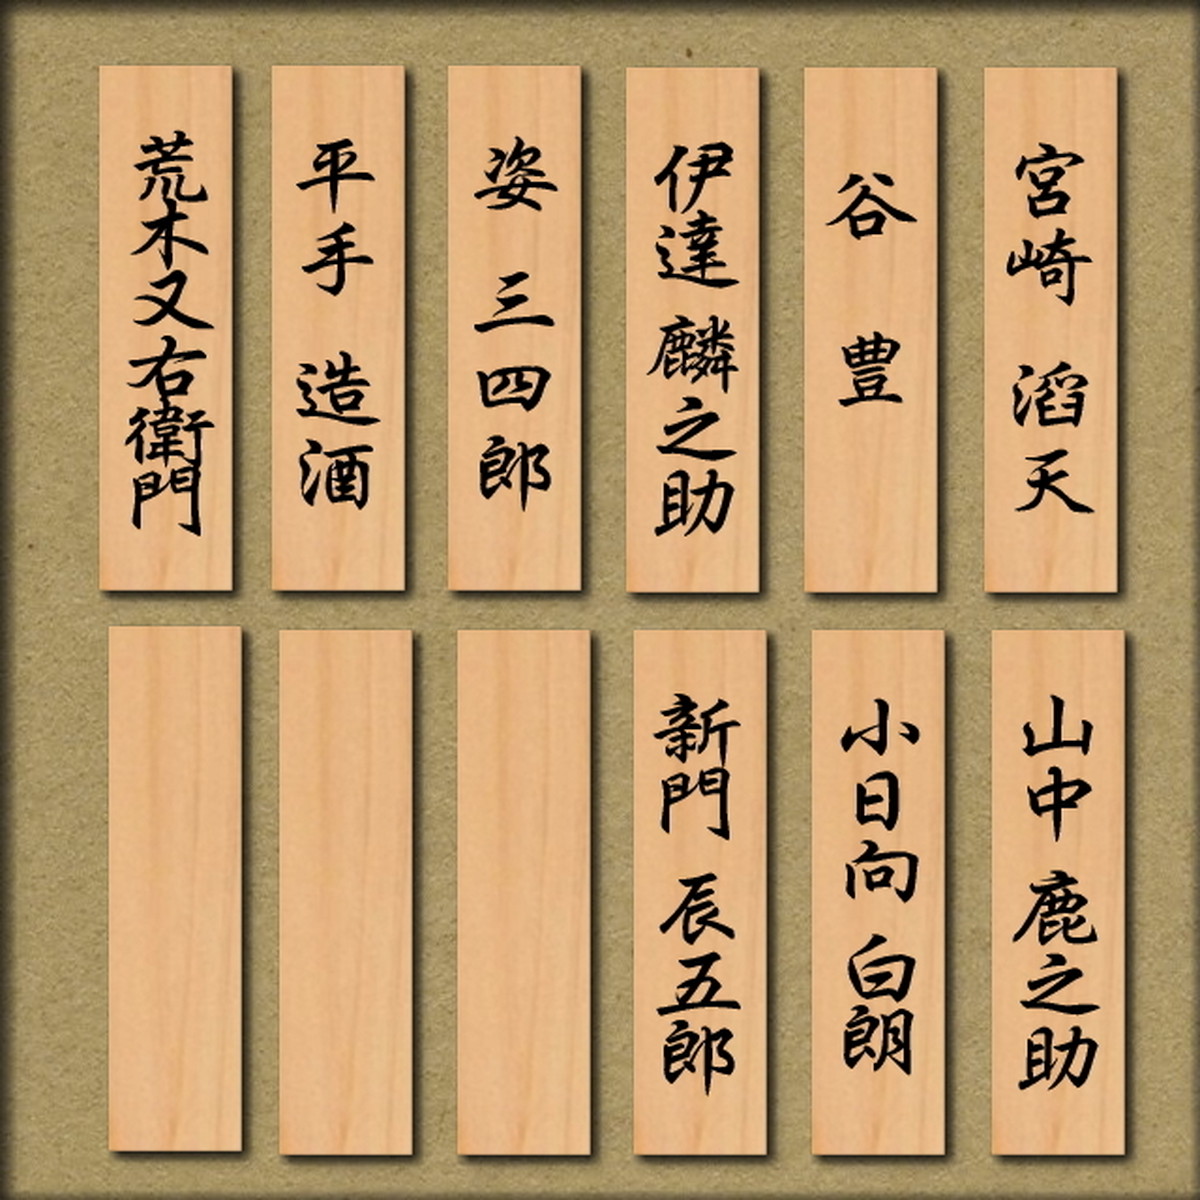 宮崎 滔天
谷 豊
伊達 麟之助
姿 三四郎
平手 造酒
荒木又右衛門
山中 鹿之助
小日向 白朗
新門 辰五郎